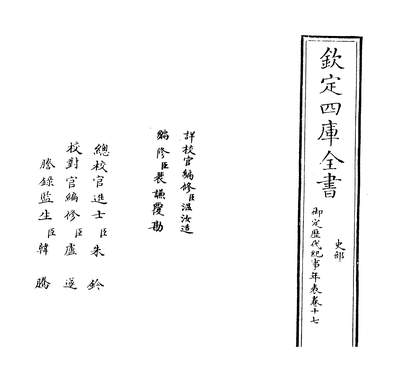 欽定四庫全書
史部
御定歴代紀事年表卷十七
詳校官編修臣温汝适
編修臣裴謙覆勘
總校官進士臣朱鈐
校對官編修臣盧遂
謄錄監生臣韓騰